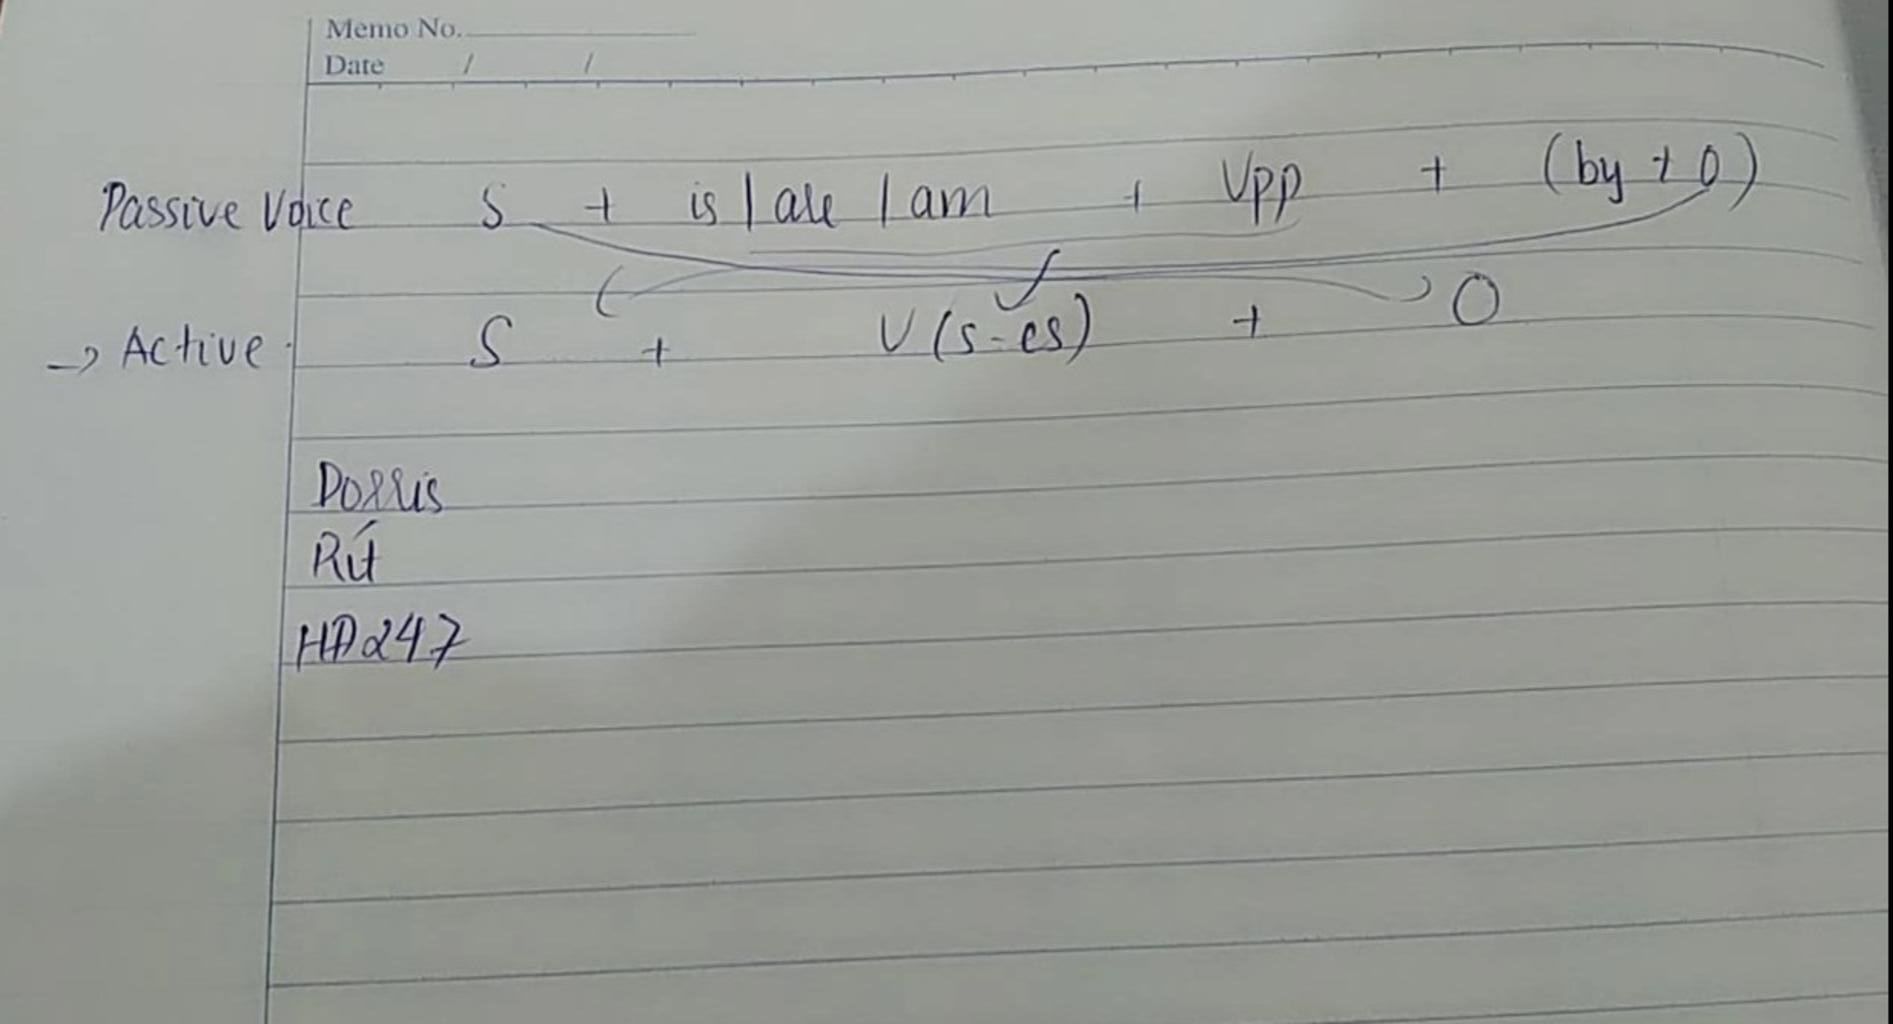 Memo No.
Date / /
Passive Voice S + is / are / am + Vpp + (by + O)
→ Active S + V (s-es) + O
Dorris
Rít
HD247